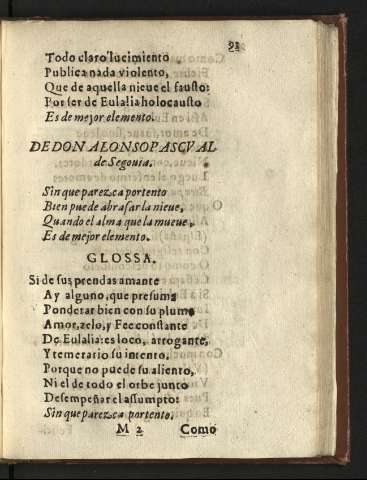 91
Todo claro lucimiento
Publica nada violento,
Que de aquella nieue el fausto:
Por ser de Eulalia holocausto
Es de mejor elemento.
DE DON ALONSO PASCVAL
de Segouia.
Sin que parezca portento
Bien puede abrasar la nieue,
Quando el alma que la mueue,
Es de mejor elemento.
GLOSSA.
Si de sus prendas amante
Ay alguno, que presuma
Ponderar bien con su pluma
Amor, zelo, y Fee constante
De Eulalia: es loco, arrogante,
Y temerario su intento,
Porque no puede su aliento,
Ni el de todo el orbe junto
Desempeñar el assumpto:
Sin que parezca portento.
M 2 Como